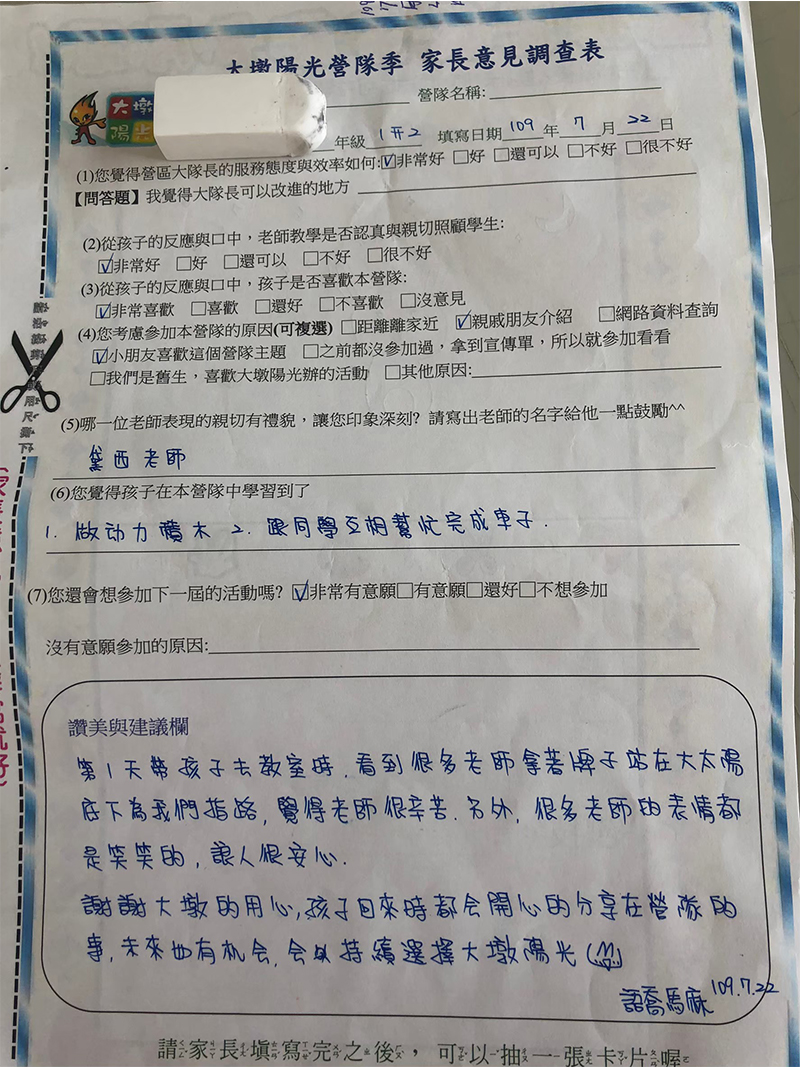 大墩陽光營隊季 家長意見調查表
營隊名稱:
大墩
陽光
年級 1升2 填寫日期 109 年 7 月 22 日
(1)您覺得營區大隊長的服務態度與效率如何:☑非常好 □好 □還可以 □不好 □很不好
【問答題】我覺得大隊長可以改進的地方
(2)從孩子的反應與口中，老師教學是否認真與親切照顧學生:
☑非常好 □好 □還可以 □不好 □很不好
(3)從孩子的反應與口中，孩子是否喜歡本營隊:
☑非常喜歡 □喜歡 □還好 □不喜歡 □沒意見
(4)您考慮參加本營隊的原因(可複選) □距離離家近 ☑親戚朋友介紹 □網路資料查詢
☑小朋友喜歡這個營隊主題 □之前都沒參加過，拿到宣傳單，所以就參加看看
□我們是舊生，喜歡大墩陽光辦的活動 □其他原因:
(5)哪一位老師表現的親切有禮貌，讓您印象深刻? 請寫出老師的名字給他一點鼓勵^^
黛西老師
(6)您覺得孩子在本營隊中學習到了
1. 做动力積木 2. 跟同學互相幫忙完成車子.
(7)您還會想參加下一屆的活動嗎? ☑非常有意願□有意願□還好□不想參加
沒有意願參加的原因:
讚美與建議欄
第1天帶孩子去教室時, 看到很多老師拿著牌子站在大太陽
底下為我們指路, 覺得老師很辛苦. 另外, 很多老師的表情都
是笑笑的, 讓人很安心.
謝謝大墩的用心, 孩子回來時都会開心的分享在營隊的
事, 未來如有机会, 会持續選擇大墩陽光
語喬馬麻 109.7.22
請家長填寫完之後，可以抽一張卡片喔